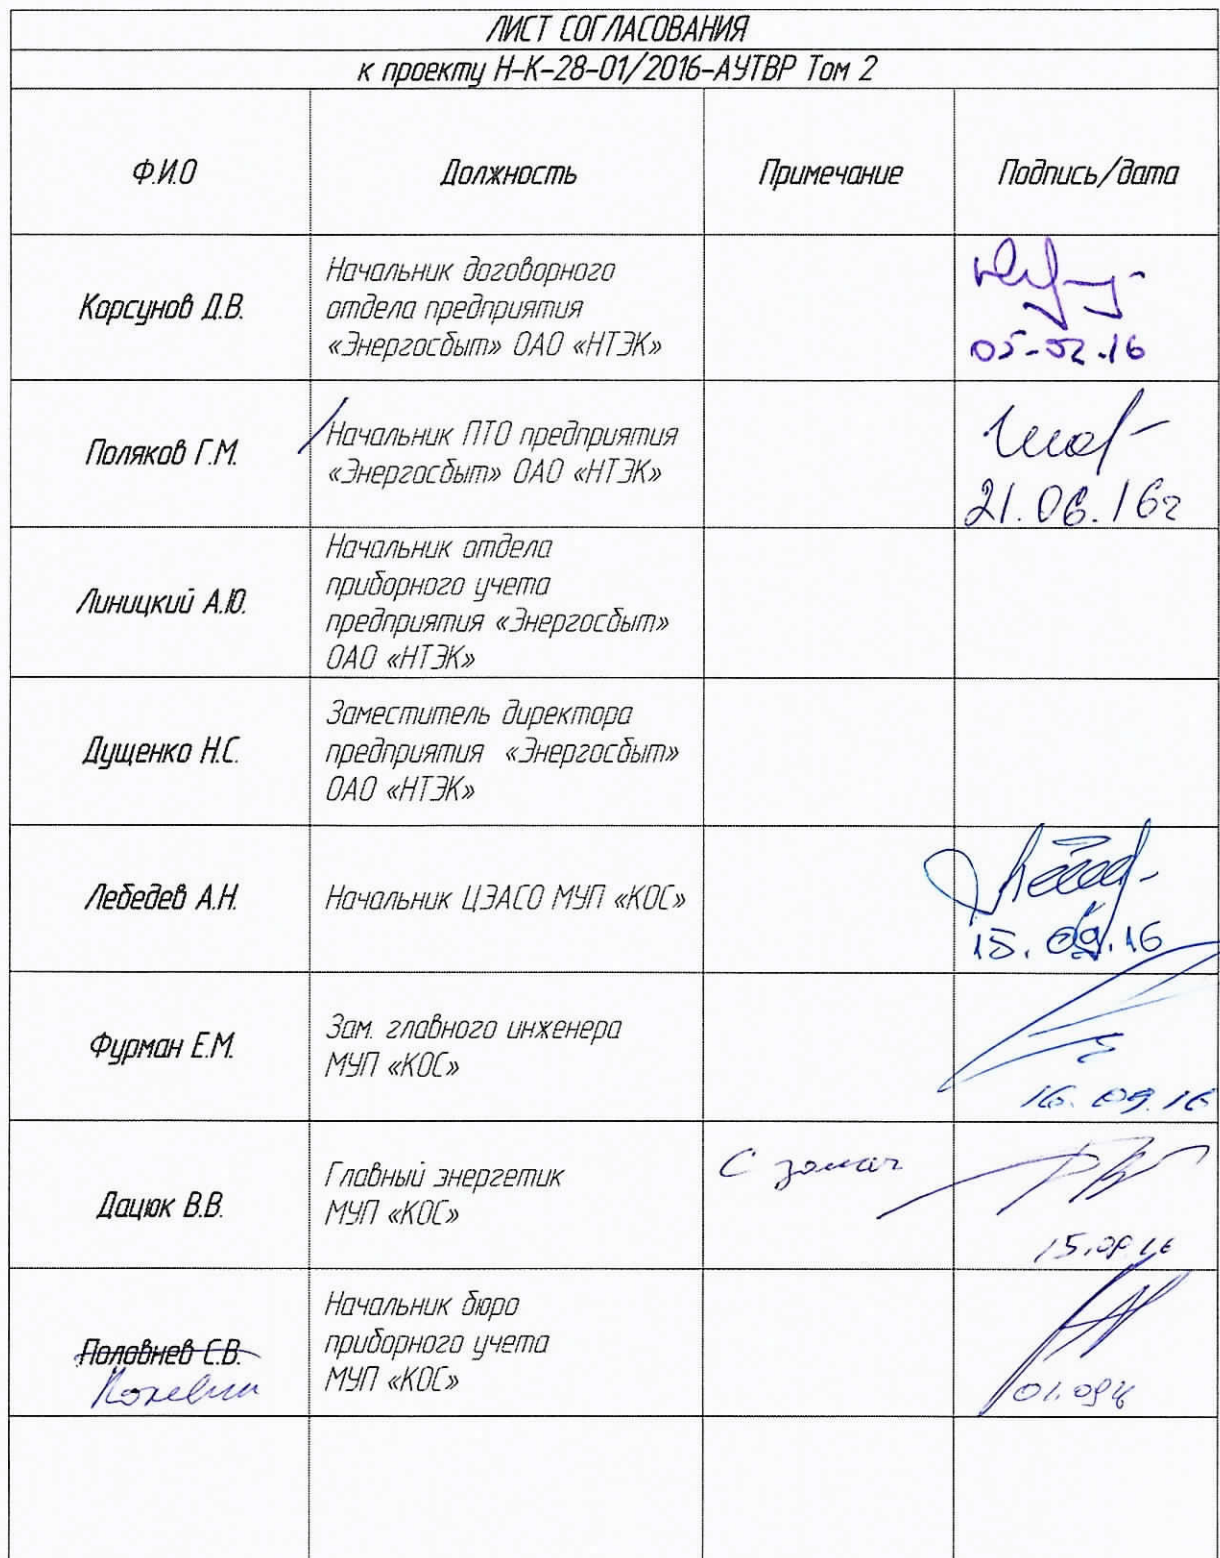 ЛИСТ СОГЛАСОВАНИЯ
к проекту Н-К-28-01/2016-АУТВР Том 2
Ф.И.О
Должность
Примечание
Подпись/дата
Корсунов Д.В.
Начальник договорного
отдела предприятия
«Энергосбыт» ОАО «НТЭК»
05-02.16
Поляков Г.М.
Начальник ПТО предприятия
«Энергосбыт» ОАО «НТЭК»
21.06.16г
Линицкий А.Ю.
Начальник отдела
приборного учета
предприятия «Энергосбыт»
ОАО «НТЭК»
Дущенко Н.С.
Заместитель директора
предприятия «Энергосбыт»
ОАО «НТЭК»
Лебедев А.Н.
Начальник ЦЭАСО МУП «КОС»
15.09.16
Фурман Е.М.
Зам. главного инженера
МУП «КОС»
16.09.16
Дацюк В.В.
Главный энергетик
МУП «КОС»
С замеч
Половнев С.В.
Начальник бюро
приборного учета
МУП «КОС»